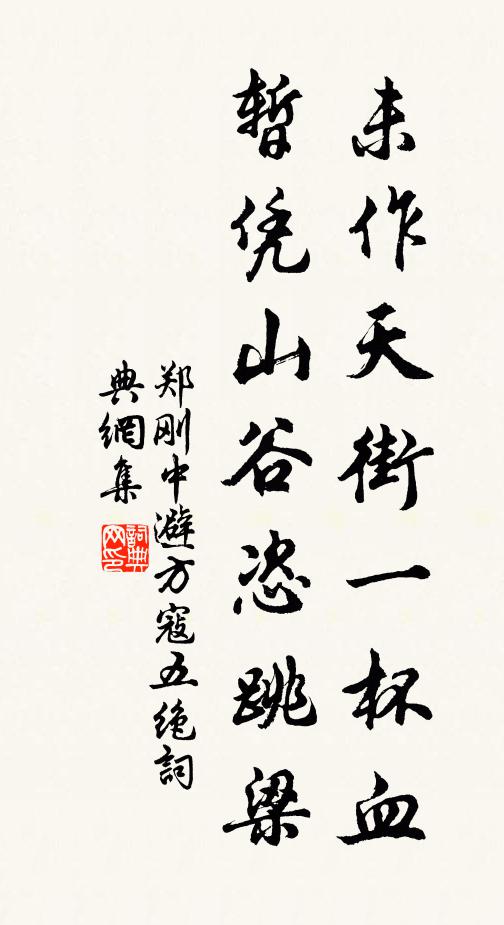 未作天街一杯血
暂凭山谷恣跳梁
郑刚中避方寇五绝詞
典網集
詞典网印